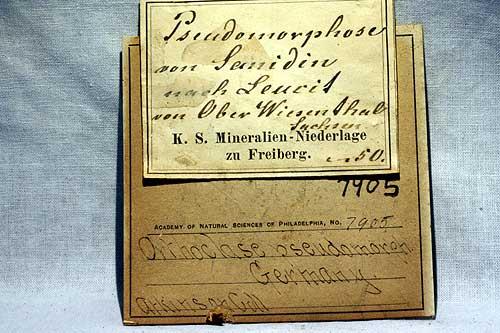 Pseudomorphose
von Sanidin
nach Leucit
von Ober Wiesenthal
Sachsen
K. S. Mineralien-Niederlage
zu Freiberg. 50.
7905
ACADEMY OF NATURAL SCIENCES OF PHILADELPHIA, No. 7905
Orthoclase pseudomorph
Germany.